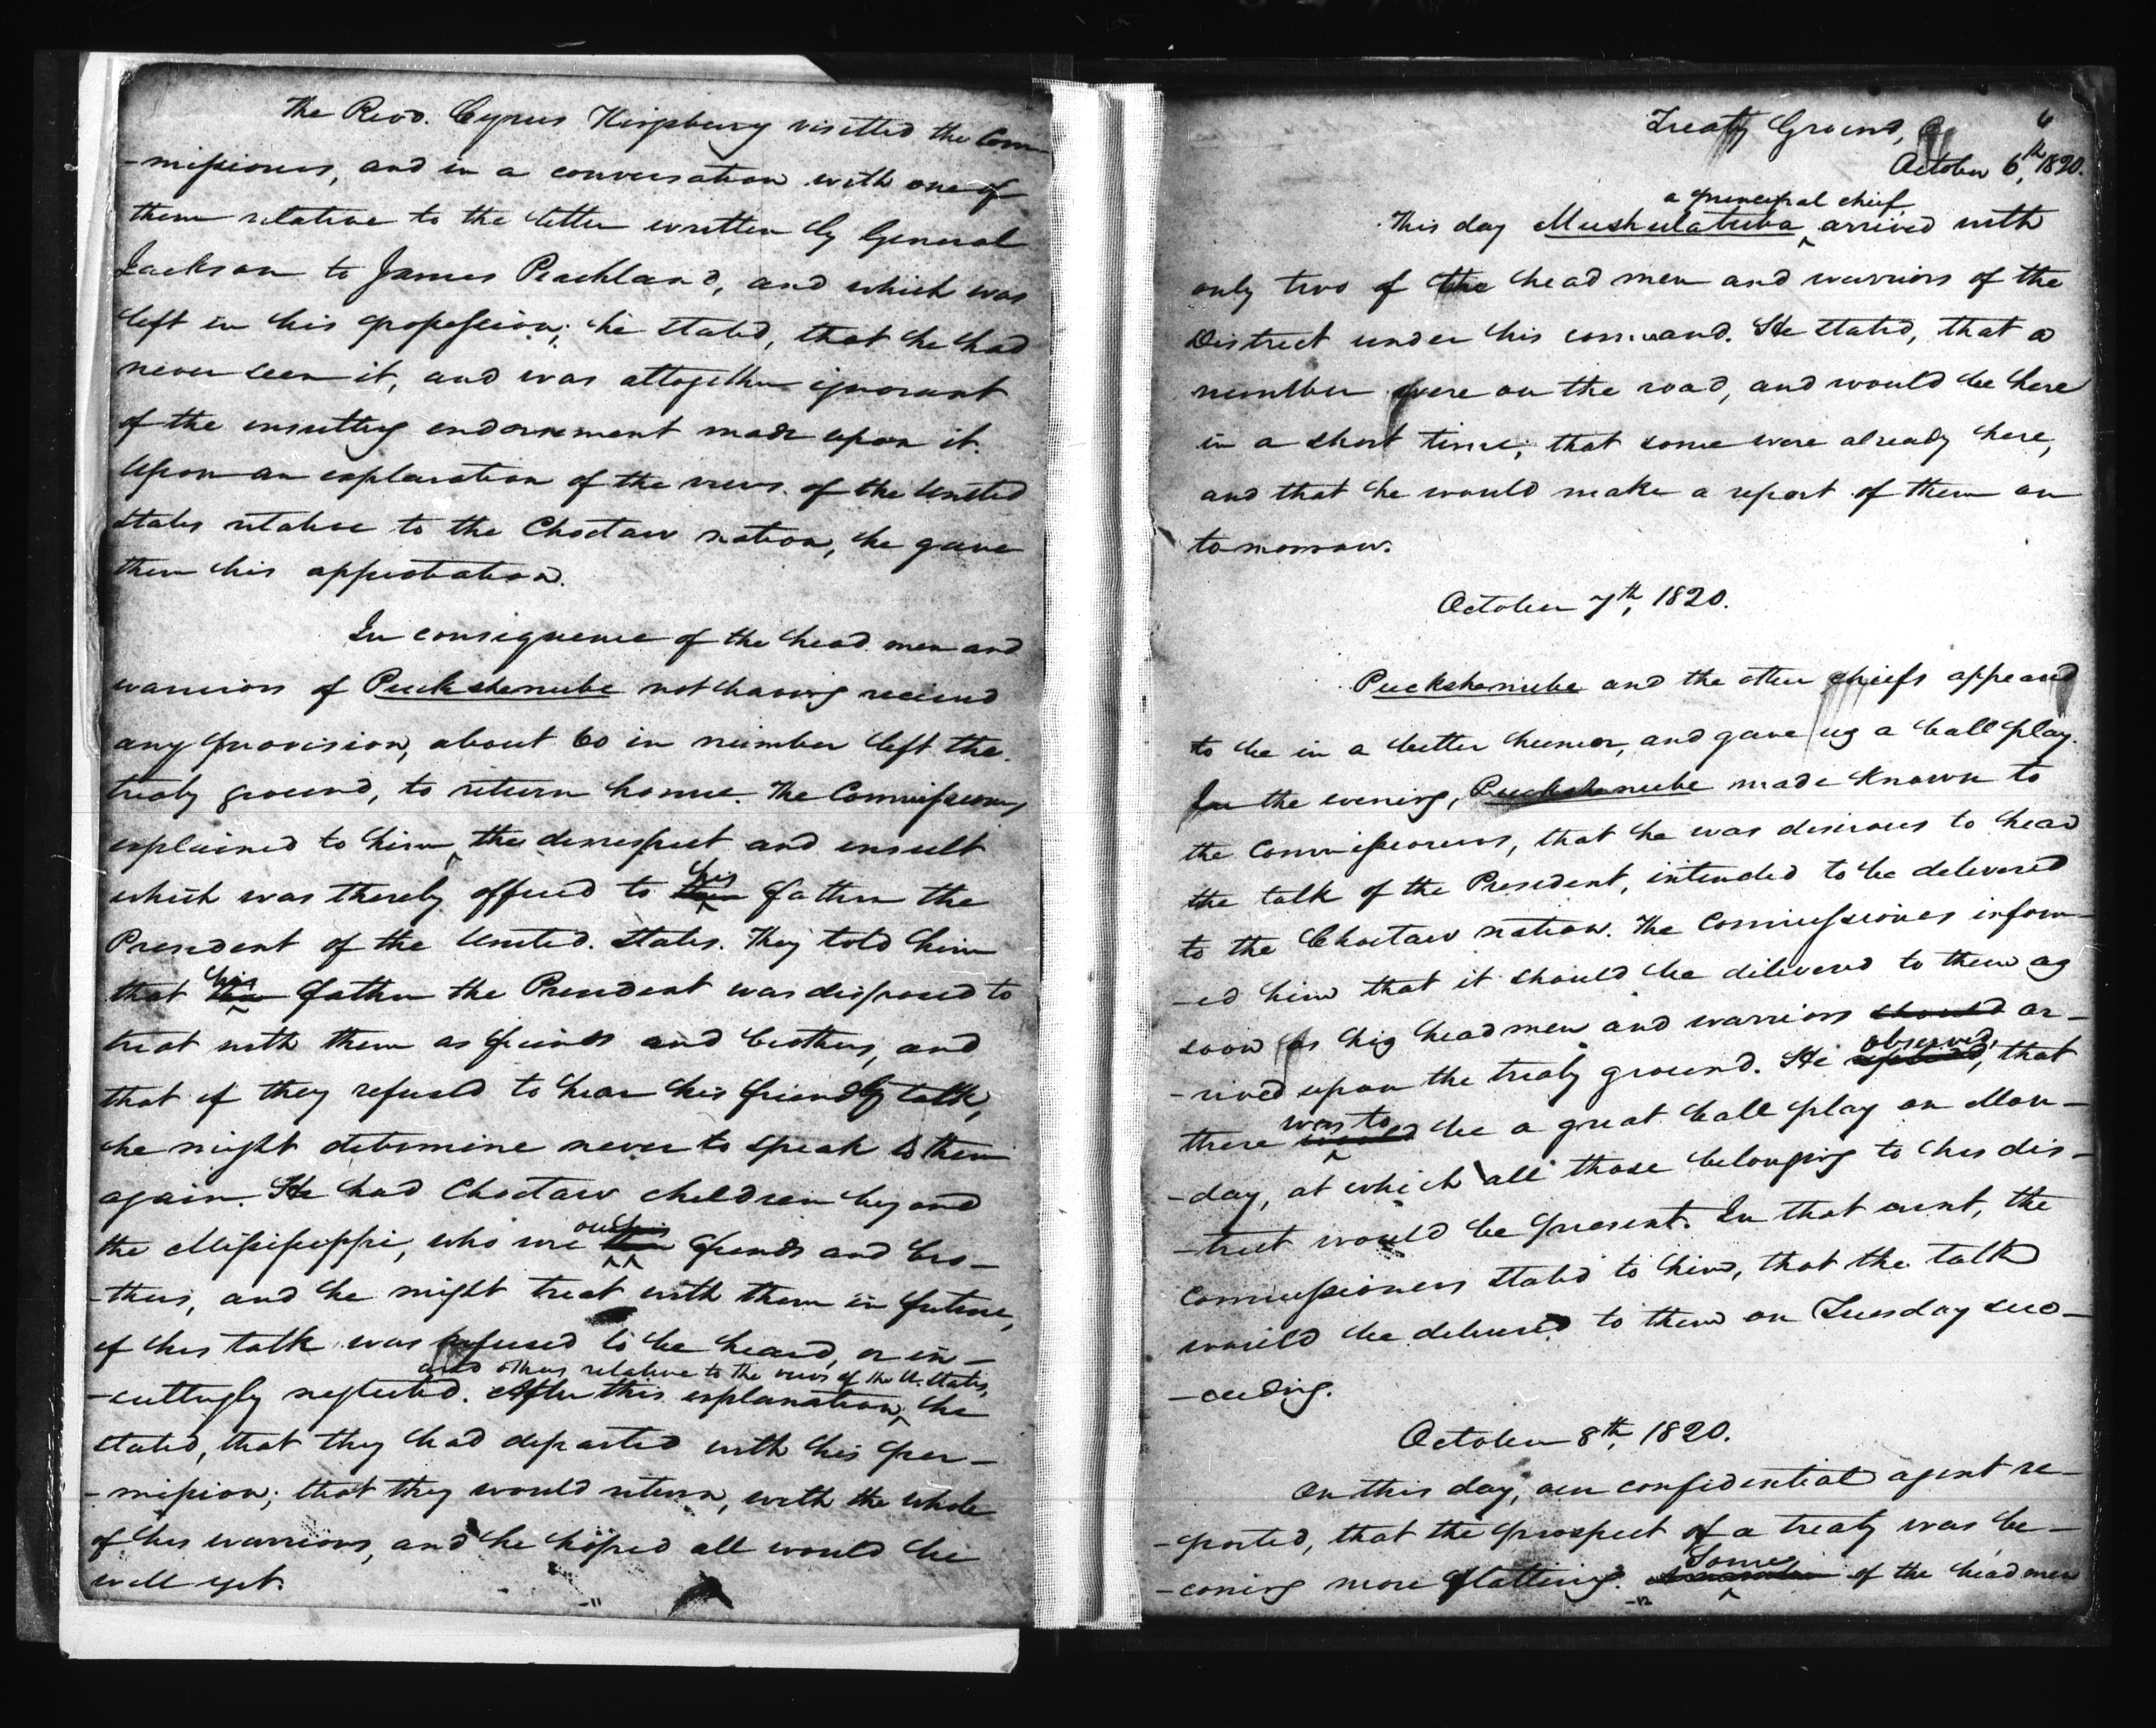 The Revd. Cyrus Kingsbury visitted the Com-
-missioners, and in a conversation with one of
them relative to the letter written by General
Jackson to James Peachland, and which was
left in his possession; he stated, that he had
never seen it, and was altogether ignorant
of the insulting endorsement made upon it.
Upon an explanation of the views of the United
States relative to the Choctaw nation, he gave
them his approbation.
In consequence of the head men and
warriors of Puckshenube not having received
any provision, about 60 in number left the
treaty ground, to return home. The Commissioners
explained to him the disrespect and insult
his
which was thereby offered to their father the
President of the United States. They told him
his
that their father the President was disposed to
treat with them as friends and brothers, and
that if they refused to hear his friendly talk,
he might determine never to speak to them
again. He had Choctaw children beyond
our his
the Missisippi, who were their friends and bro-
-thers, and he might treat with them in future,
if his talk was refused to be heard, or in-
and others relative to the views of the U. States,
-sultingly neglected. After this explanation, he
stated, that they had departed with his per-
-mission; that they would return, with the whole
of his warriors, and he hoped all would be
well yet.
-11
6
Treaty Ground,
October 6th, 1820.
a principal chief
This day Mushulatubba arrived with
only two of the head men and warriors of the
District under his command. He stated, that a
number were on the road, and would be here
in a short time; that some were already here,
and that he would make a report of them on
tomorrow.
October 7th, 1820.
Puckshenube and the other chiefs appeared
to be in a better humor, and gave us a ball play.
In the evening, Puckshenube made known to
the Commissioners, that he was desirous to hear
the talk of the President, intended to be delivered
to the Choctaw nation. The Commissioners inform-
-ed him that it should be delivered to them as
soon as his head men and warriors should ar-
observed,
-rived upon the treaty ground. He replied, that
was to
there would be a great ball play on Mon-
-day, at which all those belonging to his dis-
-trict would be present. In that event, the
Commissioners stated to him, that the talk
would be delivered to them on Tuesday suc-
-ceeding.
October 8th, 1820.
On this day, our confidential agent re-
-ported, that the prospect of a treaty was be-
Some
-coming more flattering. A number of the head men
-12